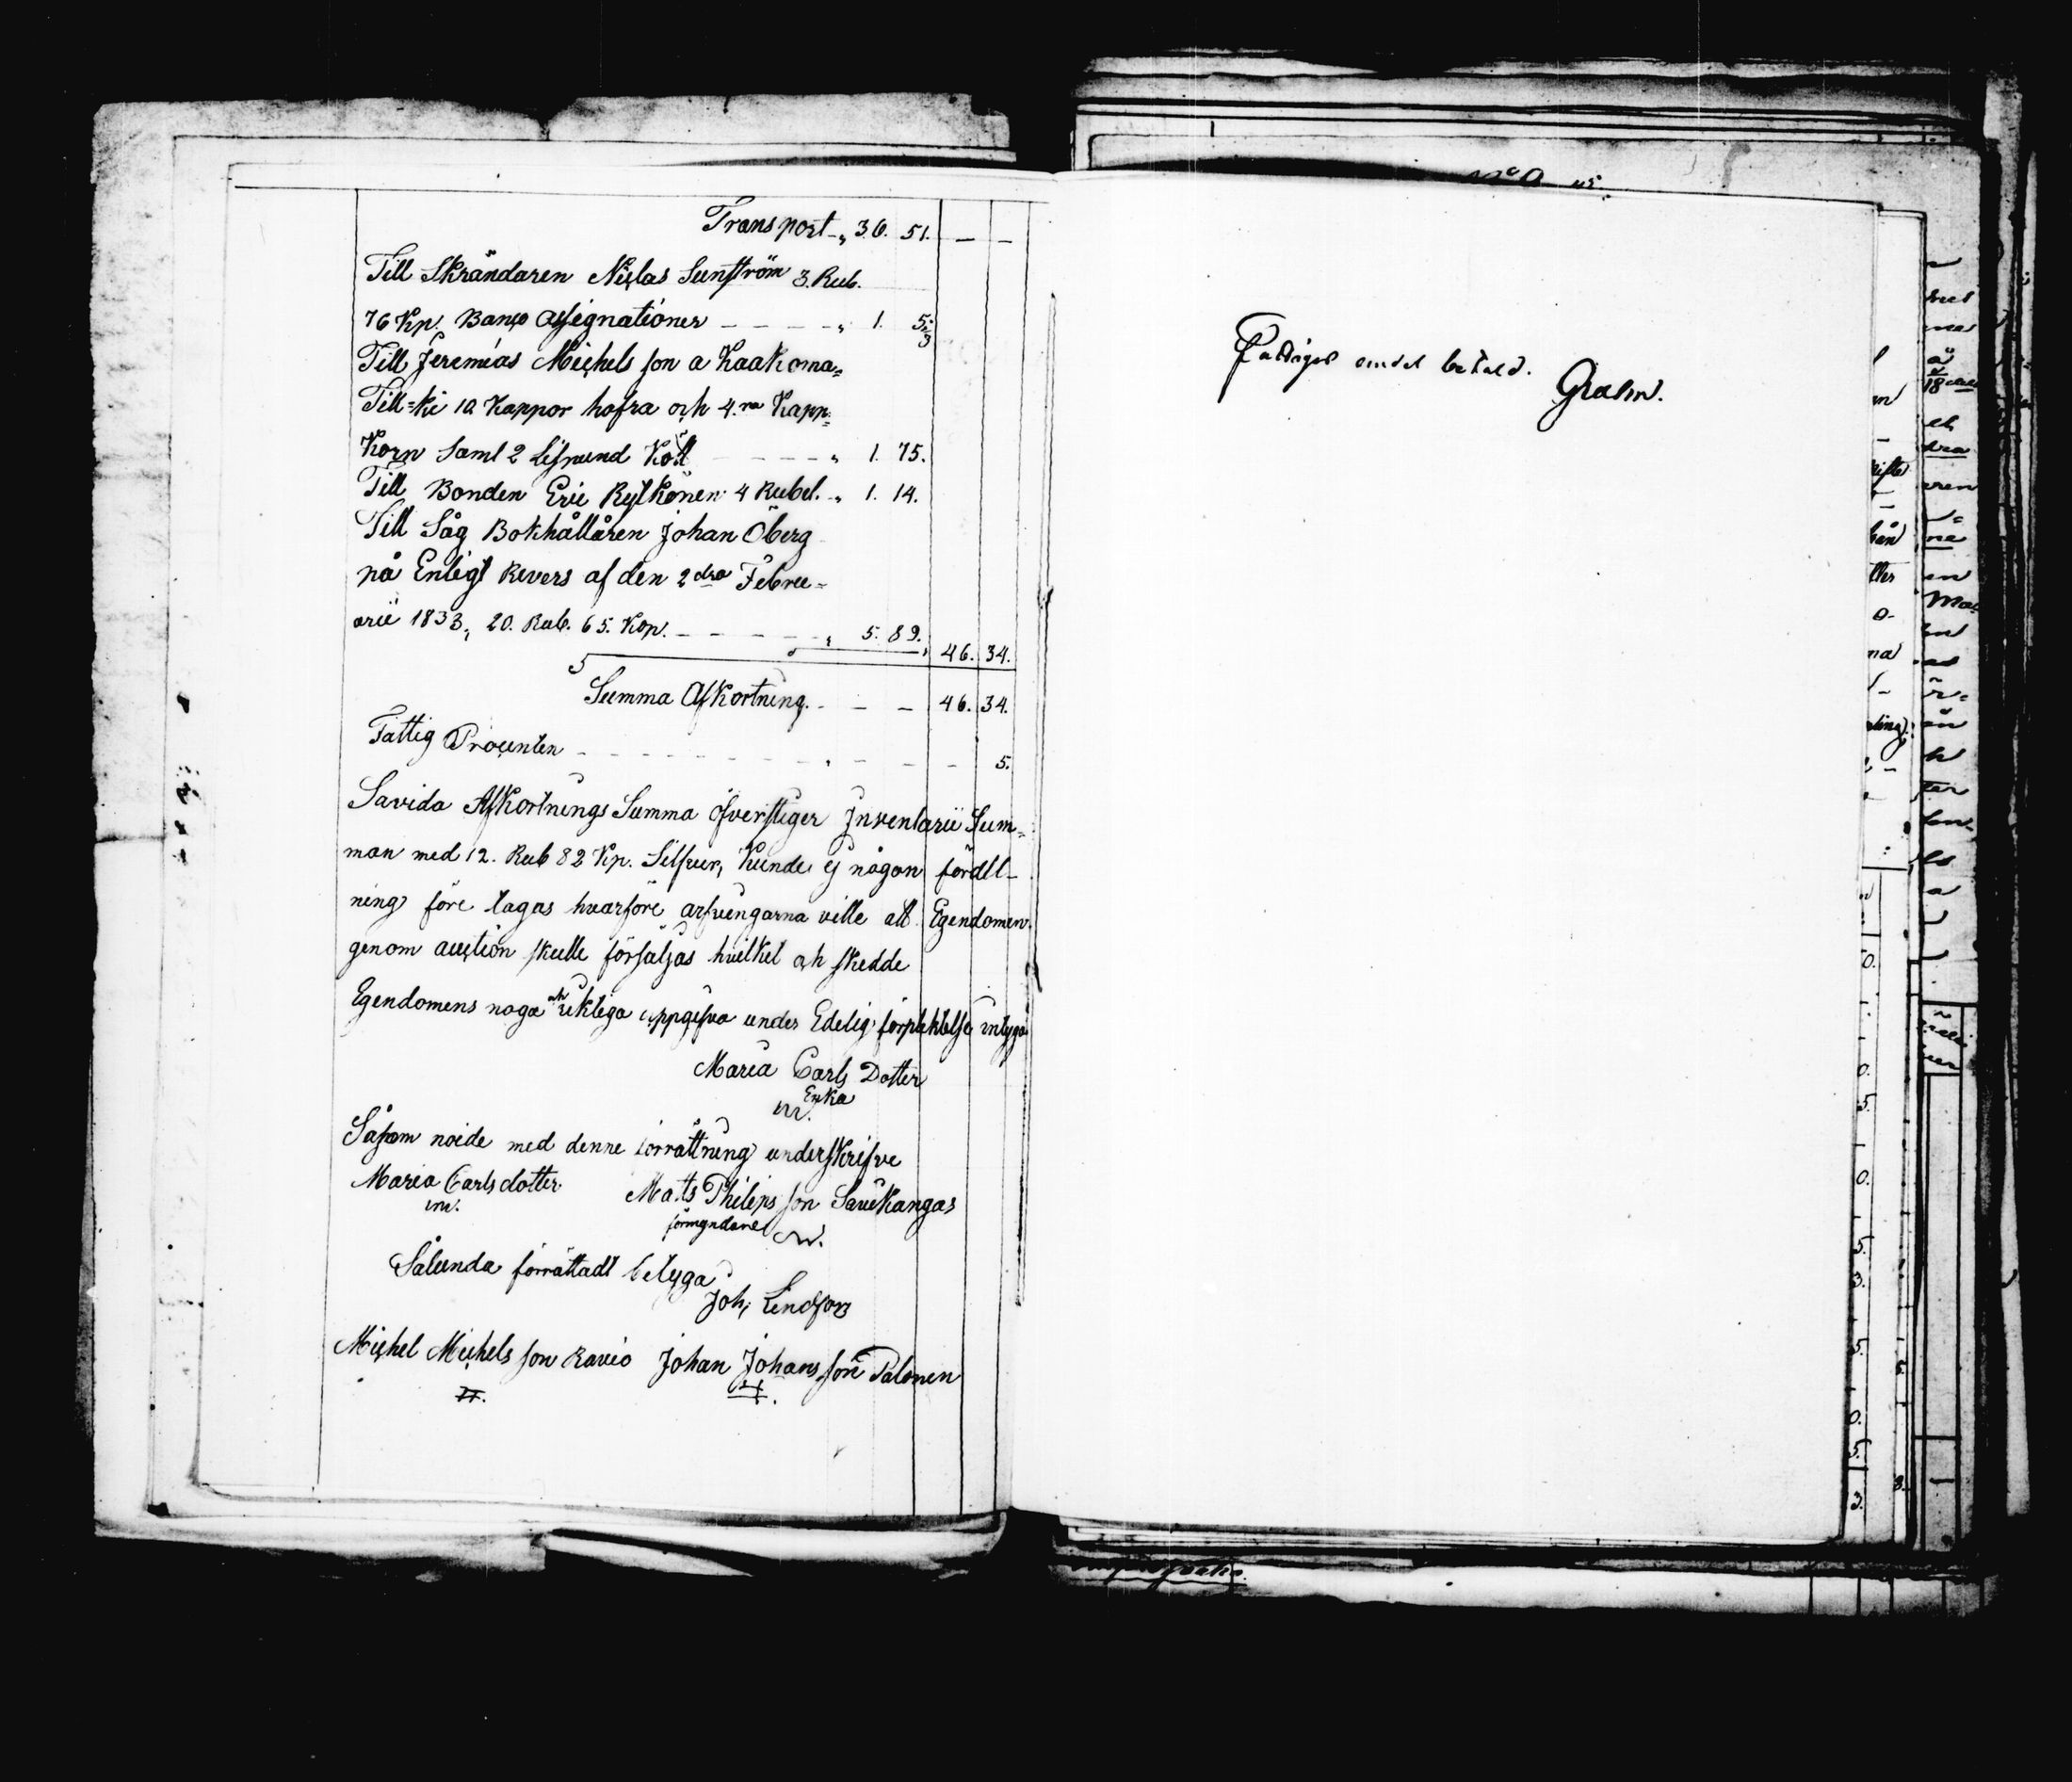 Transport „ 36. 51. — —
Till Skrändaren Niclas Sunström 3. Rub.
76 Kp. Banco Assignationer — — — — „ 1. 5 5/3
Till Jeremias Michels son a Kaakoma=
Till=ki 10 Kappor hafra och 4.ra Kapp.
Korn Saml 2 Lispund Kött — — — — „ 1. 75.
Till Bonden Eric Rytkönen 4 Rubel. „ 1. 14.
Till Såg Bokhållåren Johan Öberg
på Enligt Revers af den 2dra Febru=
arii 1833, 20. Rub. 65. Kop. — — — — „ 5. 89. 46. 34.
Summa Afkortning. — — — 46. 34.
Fattig Procenten — — — — — — — — 5.
Savida Afkortnings Summa öfverstiger Inventarii Sum=
man med 12. Rub 82 Kp. Silfver, Kunde ej någon fördel-
ning före tagas hvarföre arfvingarna ville att Egendomen
genom auction skulle försäljas hvilket och skedde
Egendomens noga och riktiga uppgifva under Edelig förpliktelse intyga
Maria Carls Dotter
Enka
Såsom nöide med denne förrättning underskrifve
Maria Carlsdotter Matts Philips son Sauikangas
förmyndare
Sålunda förrättadt betyga
Joh. Lindfors
Michel Michels son Ravio Johan Johans son Palonen
Fattiges andel betald.
Grahn.